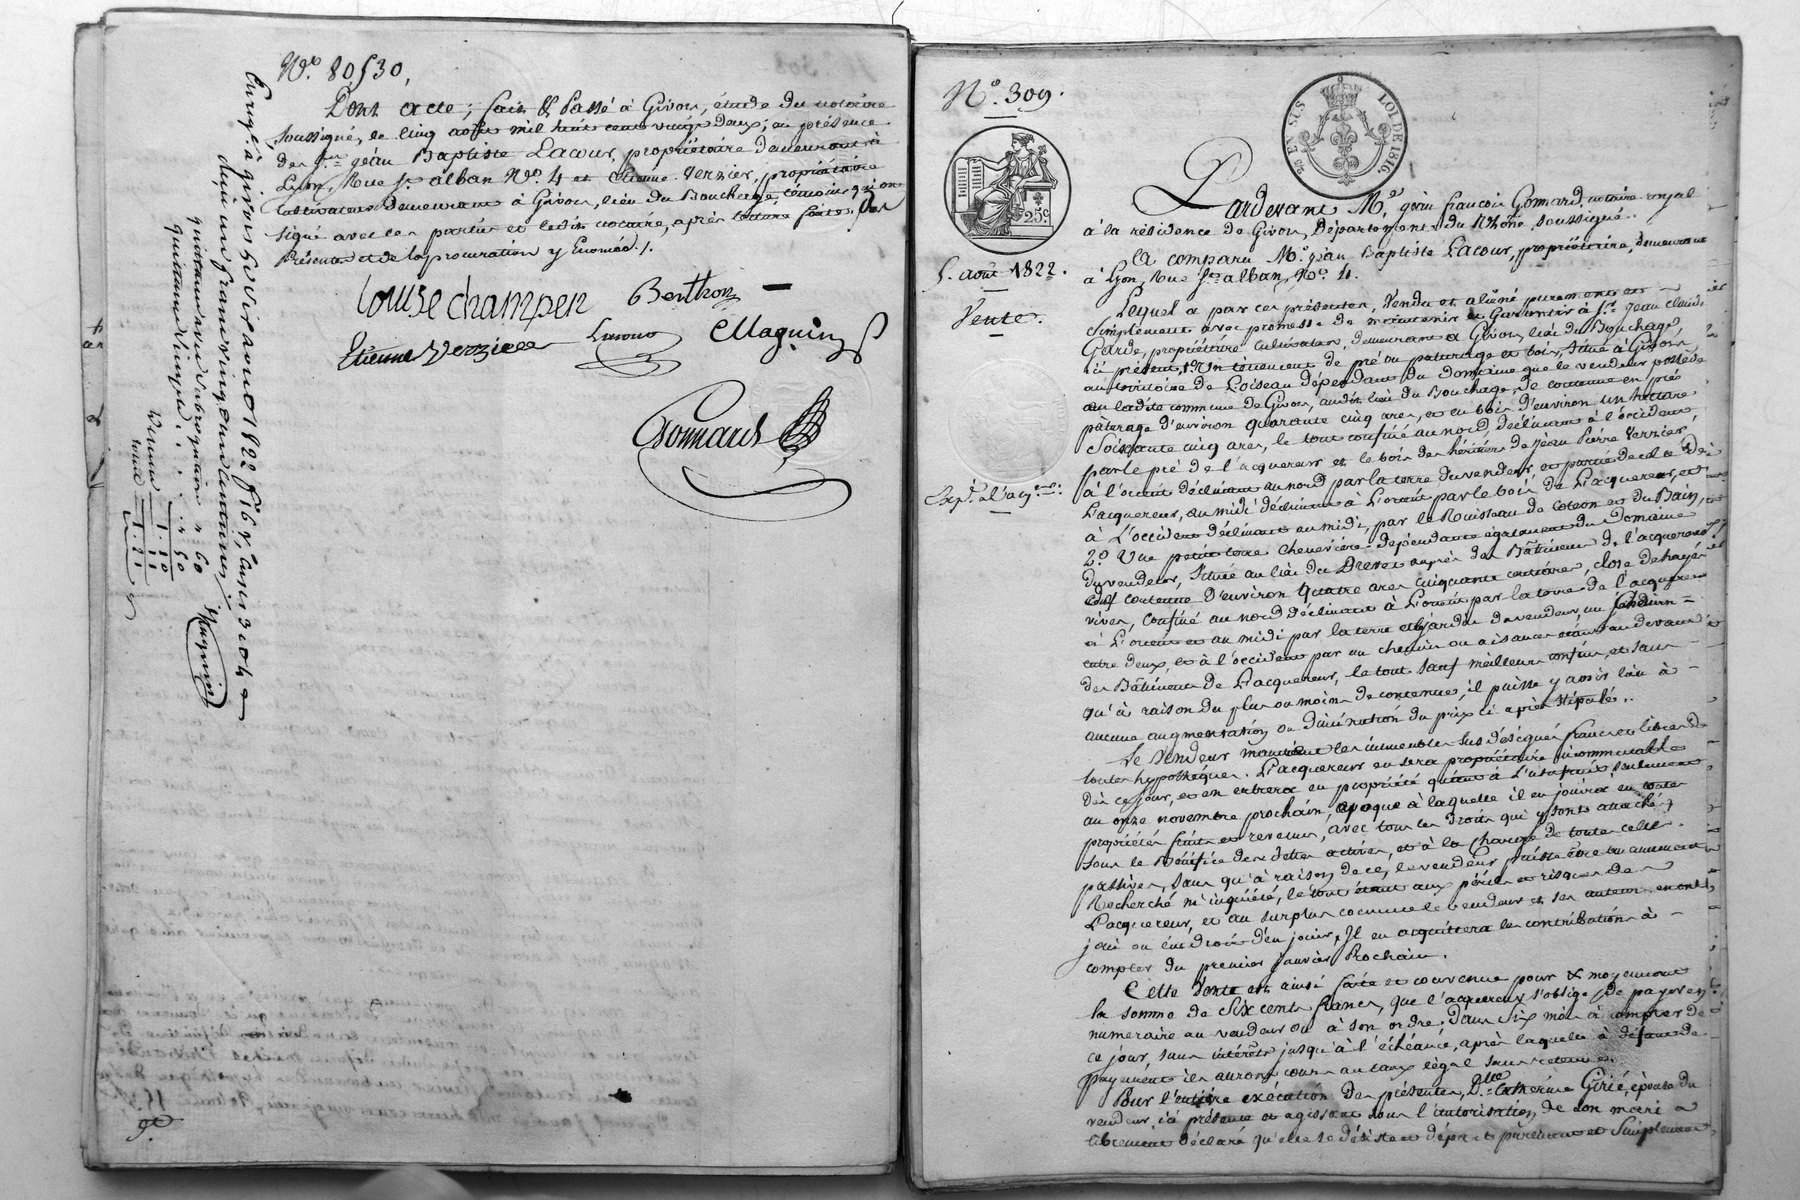 N.º 80530,
Dont acte; fait & Passé à Givors, étude du notaire
soussigné, le cinq août mil huit cent vingt deux; en présence
des Srs jean Baptiste Lacour, propriétaire demeurant à
Lyon, Rue St alban No. 4 et Etienne Verzier, propriétaire
cultivateur demeurant à Givors, lieu du Bouchage, témoins qui ont
signé avec les parties et ledit notaire, après lecture faite des
Présentes et de la procuration y Enoncée /.
Louise champen Berthon
Etienne Verzier Lacour Magnin
Gomard
Enregé à givors le six aout 1822 fº 16 Rº, Cases 3 et 4
reçu un franc vingt un centimes
quittance et subrogation " 60
quittance simple " 50
1. 10
11
total 1. 21
Magnin
N.º 309.
25 EN SUS LOI DE 1816.
25c
5. août 1822.
Vente.
Expé. à l'acqueur.
Pardevant Me. jean françois Gomard, notaire royal
à la résidence de Givors, Département du Rhône soussigné..
A comparu Mr. jean Baptiste Lacour, propriétaire, demeurant
à Lyon, Rue St. alban, No. 4.
Lequel a par ces présentes, Vendu et aliéné purement et
simplement avec promesse de maintenir et Garantir à Sr. Jean claude
Garde, propriétaire cultivateur, demeurant à Givors, lieu du Bouchage,
ici présent, 1º. Un tènement de pré ou paturage et bois, situé à Givors,
au territoire de Loiseau dépendant du Domaine que le vendeur possède
en ladite commune de Givors, audit lieu du Bouchage, de contenue en pré
pâturage d'environ quarante cinq ares, et en bois d'environ un hectare
Soixante cinq ares, le tout confiné au nord déclinant à l'occident,
par le pré de l'acquereur et le bois des héritiers de Jean Pierre Verzier,
à l'orient déclinant au nord par la terre du vendeur et partie de celle de
L'acquereur, au midi déclinant à L'orient par le bois de L'acquereur, et
à L'occident déclinant au midi, par le Ruisseau de Coteon et du Bain,
2.º Une petite terre Chenevière dépendante également du Domaine
du vendeur, située au lieu du auprès des Bâtimens de l'acquereur
contenue d'environ quatre ares cinquante centiares, close de hayes
vives, confiné au nord déclinant à L'orient par la terre de l'acquéreur
à L'orient et au midi par la terre et jardin du vendeur, un chemin
entre deux, et à l'occident par un chemin ou aisances étant au devant
des Bâtimens de L'acquereur, le tout sauf meilleurs confins, et sans
qu'à raison du plus ou moins de contenue, il puisse y avoir lieu à
aucune augmentation ou diminution du prix ci après stipulé..
Le Vendeur maintient les immeubles sus désignés francs et libres de
toutes hypothèques. L'acquereur en sera propriétaire incommutable
dès ce jour, et en entrera en propriété quant à L'usufruit seulement
au onze novembre prochain, époque à laquelle il en jouira en toutes
propriétés fruits et revenus, avec tous les droits qui y sont attachés,
sous le Bénéfice des dettes actives, et à la charge de toutes celles
passives, sans qu'à raison de ce, le vendeur puisse être aucunement
Recherché ni inquiété, le tout étant aux périls et risques de
L'acquereur, et au surplus comme le vendeur et ses auteurs en ont
joui ou eu droit d'en jouir, Il en acquittera les contributions à
compter du premier janvier Prochain.
Cette Vente est ainsi faite et convenue pour & moyennant
la somme de Six cents francs, que l'acquereur s'oblige de payer en
numeraire au vendeur ou à son ordre, dans Six mois à compter de
ce jour, sans intérêts jusqu'à l'échéance, après laquelle à défaut de
payement ils auront cours au taux légal sans retenue.
Pour l'entière exécution des présentes, Dlle. Catherine Girié, épouse du
vendeur, ici présente et agissant sous l'autorisation de son mari a
librement déclaré qu'elle se désiste et départ purement et Simplement